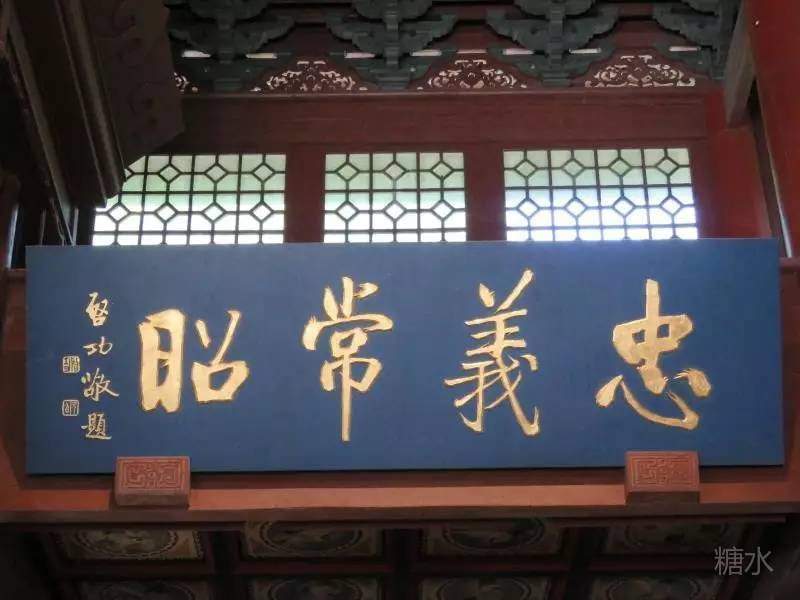 忠義常昭
啓功敬題
糖水